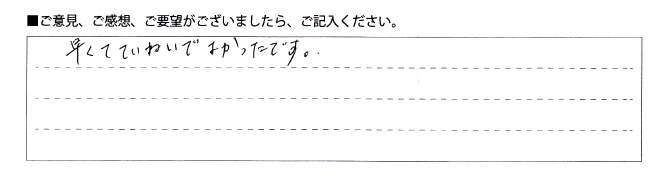 ■ご意見、ご感想、ご要望がございましたら、ご記入ください。
早くてていねいでよかったです。